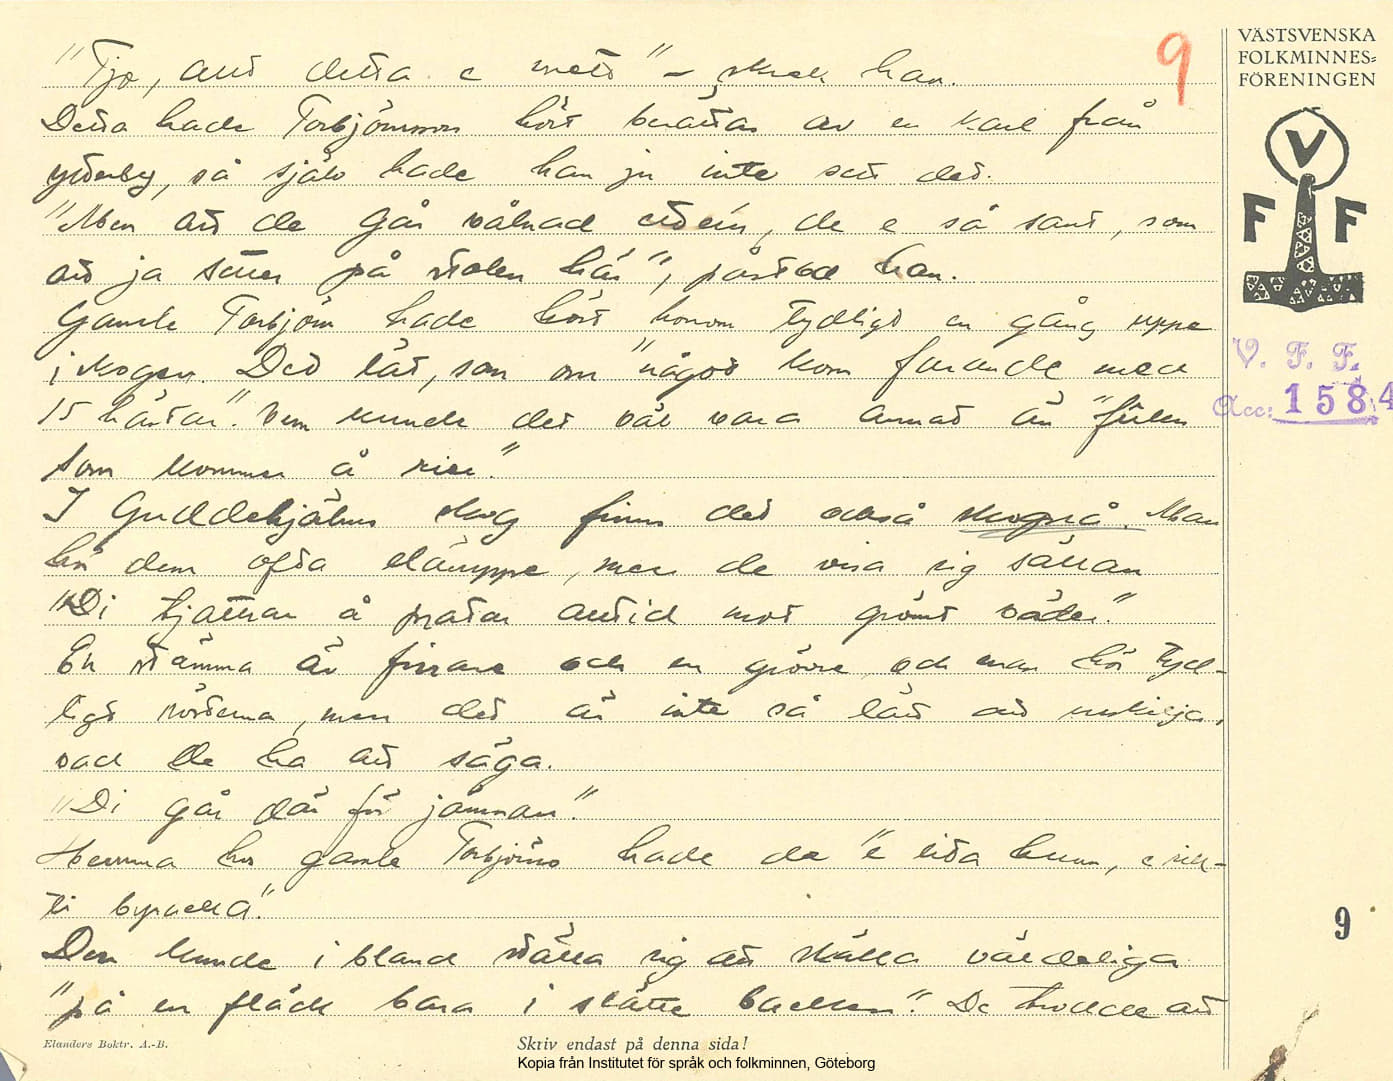 "Tjo, allt detta e mett" – skrek han.
9
Detta hade Torbjörnsson hört berättas av en karl från
Ytterby, så själv hade han ju inte sett det.
"Men att de går vålnad etter'n, de e så sant, som
att ja sitter på stolen här", påstod han.
Gamle Torbjörn hade hört honom tydligt en gång uppe
i skogen. Det lät, som om "något kom farande med
15 hästar". Vem kunde det väl vara annat än "fulen
som kommer å rier".
I Guddehjälms skog finns det också skogsrå. Man
hör dem ofta däruppe, men de visa sig sällan
"Di tjattrar å pratar alltid mot grömt väder."
En stämma är finare och en grövre, och man hör tyd-
ligt rösterna, men det är inte så lätt att urskilja,
vad de ha att säga.
"Di går där för jämnan".
Hemma hos gamle Torbjörns hade de "e lita hunn, e rik-
ti byracka".
Den kunde i bland ställa sig att skälla väldeliga
"på en fläck bara i slätte backen". De trodde att
VÄSTSVENSKA
FOLKMINNES=
FÖRENINGEN
V
F F
V. F. F.
Acc: 1584
9
Elanders Boktr. A.-B.
Skriv endast på denna sida!
Kopia från Institutet för språk och folkminnen, Göteborg